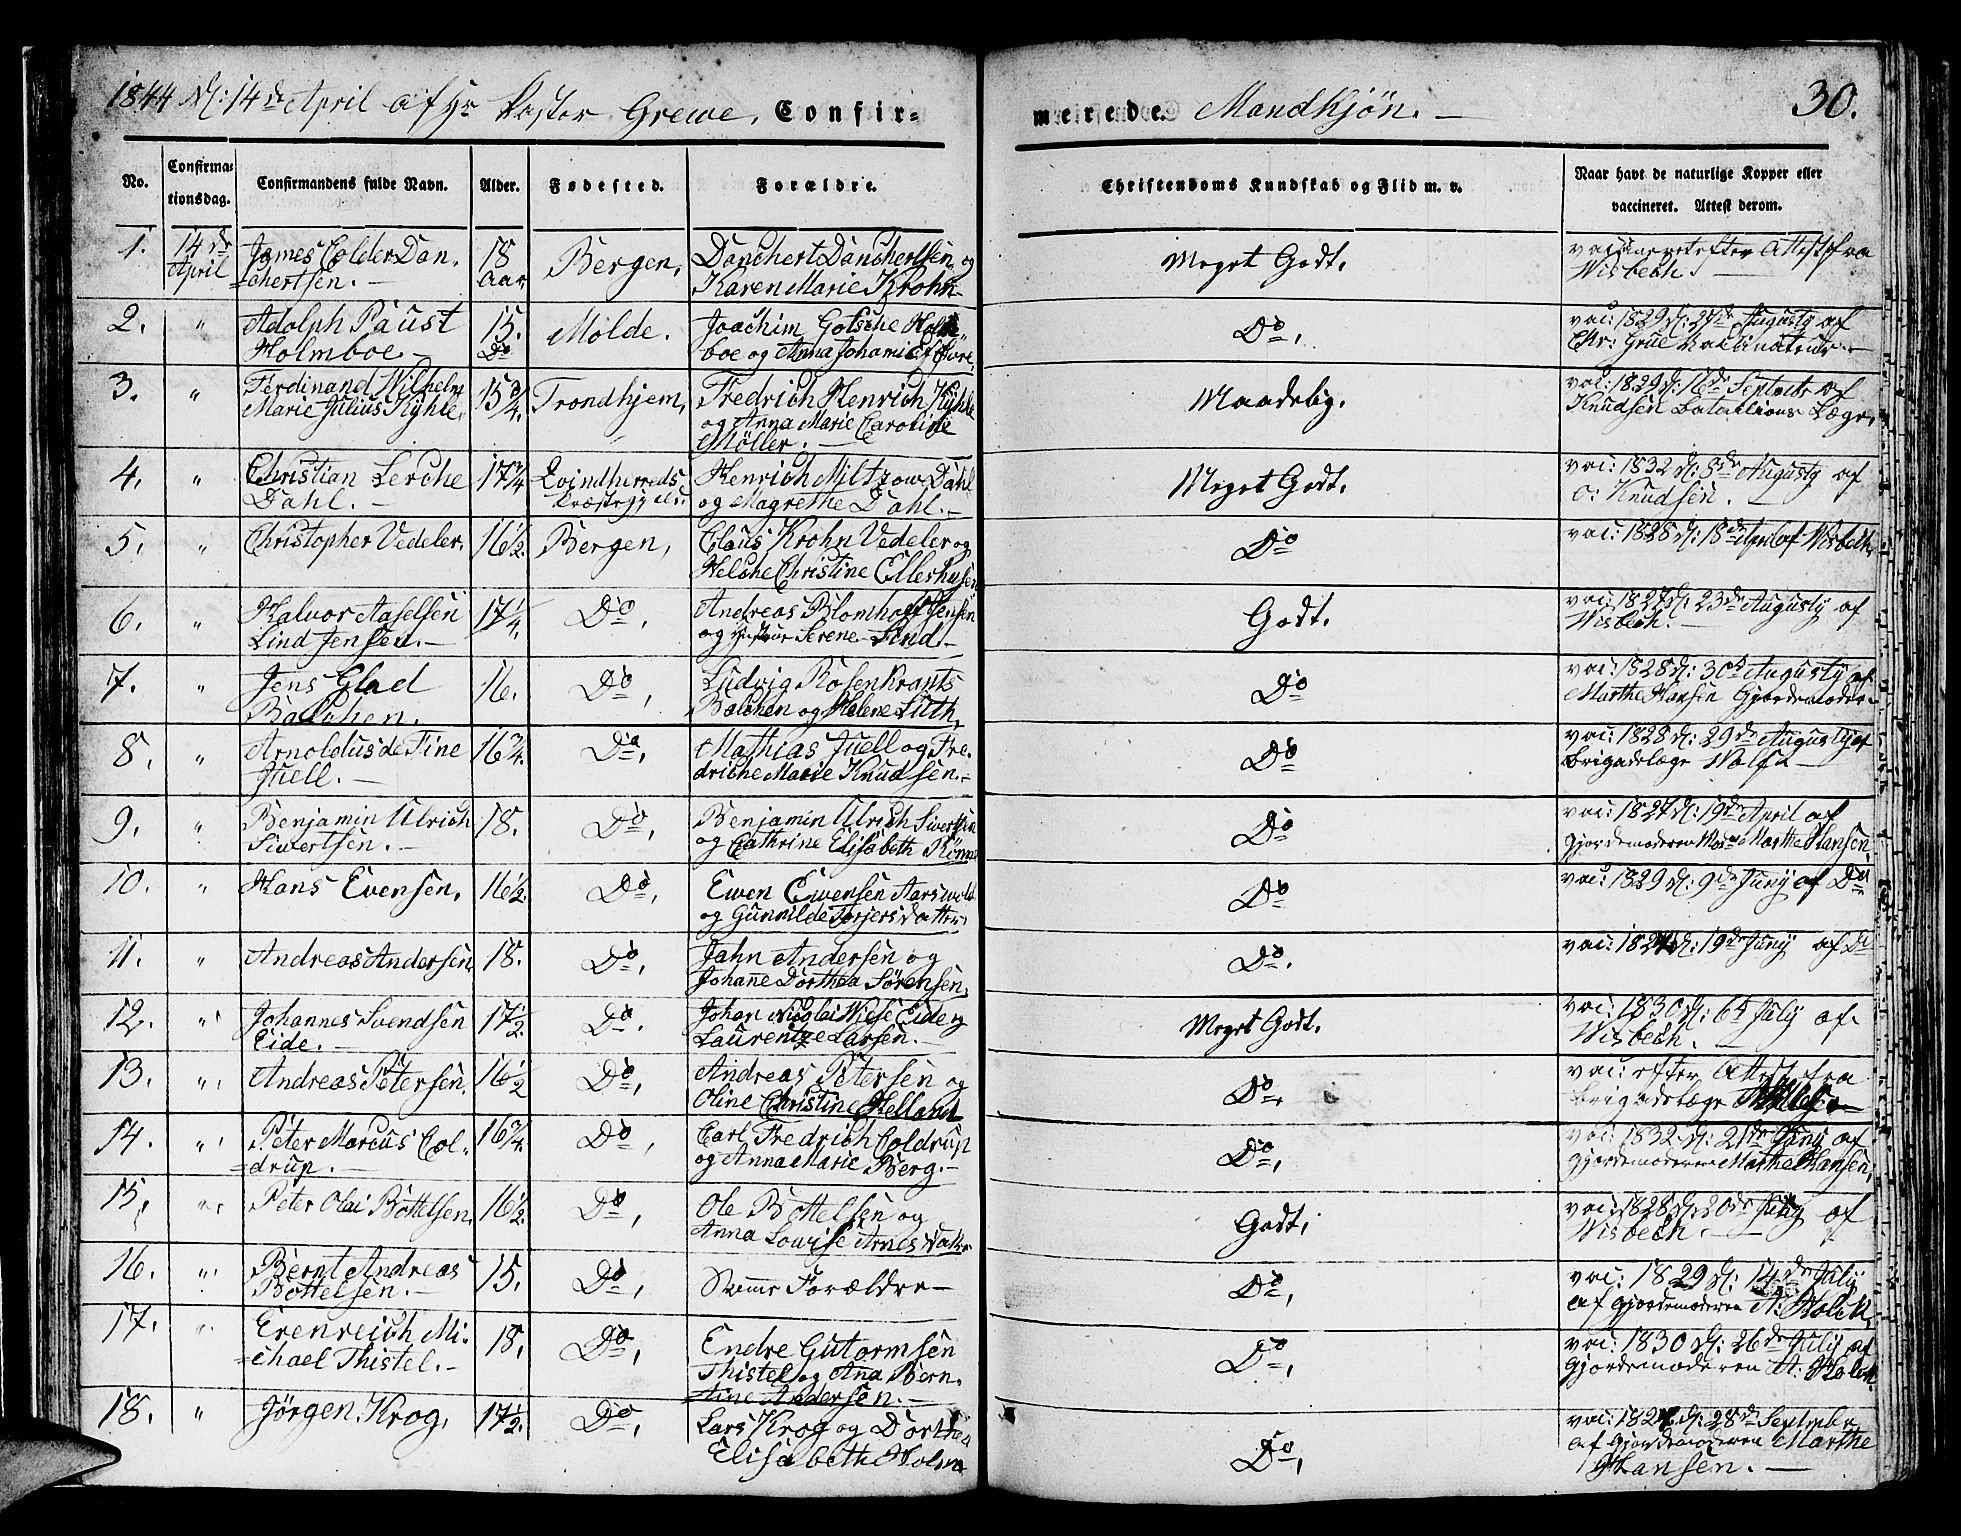 1844 d: 14de April af Hr Pastor Grewe, Confir=
merende. Mandkjøn. —
30.
No.
Confirma=
tionsdag.
Confirmandens fulde Navn.
Alder.
Fødested.
Forældre.
Christendoms Kundskab og Flid m. v.
Naar havt de naturlige Kopper eller
vaccineret. Attest derom.
1. 14de James Colder Dan, 18 Bergen, Danchert Danchertsen og Meget Godt. vaccineret efter Attest fra
April =chertsen. — Aar Karen Marie Krohn Wisbech. —
2. " Adolph Paust 15. Molde. Joachim Gotsche Holm= Do, vac: 1829 d: 27de Augusty af
Holmboe — Do boe og Anna Johamie Chr: Grue
3. " Ferdinand Wilhelm 15 3/4. Trondhjem, Fredrich Henrich Kyhle Maadelig. vac: 1829 d: 16de Septmbr af
Marie Julius Kyhle, og Anna Marie Caroline Knudsen Batallions Læge,
Møller. —
4. " Christian Lerche 17 3/4 Qvindherreds Henrich Miltzow Dahl Meget Godt. vac: 1832 d: 8de Augusty af
Dahl. — Præstegield og Magrethe Dahl. — O: Knudsen.
5. " Christopher Vedeler. 16 1/2. Bergen, Claus Krohn Vedeler og Do vac: 1828 d: 18de April af Wisbech,
Helche Christine Ellerhusen
6. " Halvor Aaselsen 17 1/4. Do, Andreas Blomhoff Jensen Godt. vac: 1827 d: 23de Augusty af
Lind Jensen. — og Serene Lind — Wisbech. —
7. " Jens Glad 16. Do, Ludvig Rosenkrants Do vac: 1828 d: 30te Augusty af
Balchen. Balchen og Helene Lüth, Marthe Hansen Gjordemoder
8. " Arnoldus de Fine 16 3/4. Do, Mathias Juell og Fre, Do vac: 1828 d: 29de Augusty af
Juell. — driche Marie Knudsen. — Brigadelæge Wolf
9. " Benjamin Ulrich 18. Do, Benjamin Ulrich Sivertsen Do vac: 1827 d: 19de April af
Sivertsen. — og Cathrine Elisabeth Rønne Gjordemoderen Mad. Marthe Hansen
10. " Hans Evensen, 16 1/2. Do, Ewen Ewensen Aarsvold Do vac: 1829 d: 9de Juny af Do
og Gunnilde Torjersdatter
11. " Andreas Andersen 18. Do, Jahn Andersen og Do. vac: 1827 d: 19de Juny af Do
Johane Dorthea Sörensen,
12. " Johannes Svendsen 17 1/2. Do. Johan Nicolai Wiese Eide og Meget Godt. vac: 1830 d: 6te July af
Eide. — Laurentze Larsen. — Wisbech. —
13. " Andreas Petersen. 16 1/2 Do, Andreas Petersen og Do, vac: efter Attest fra
Oline Christine Helland Brigadelæge
14. " Peter Marcus Col, 16 3/4. Do, Carl Fredrich Coldrup Do, vac: 1832 d: 21de Juny af
=drup. — og Anna Marie Berg. — Gjordemoderen Marthe Hansen,
15. " Peter Olai Bottelsen, 16 1/2. Do, Ole Bottelsen og Godt, vac: 1828 d: 20de Juny af
Anna Louise Arnesdatter Wisbech. —
16. " Bernt Andreas 15. Do, Samme Forældre — Do, vac: 1829 d: 14de July
Bottelsen. — af Gjordemoderen A: Holck,
17. " Erenreich Mi= 18. Do, Endre Gutormsen Do, vac: 1830 d: 26de July af
=chael Thistel. — Thistel og Ana Bern, Gjordemoderen A: Holck
tine Andersen. —
18. " Jörgen Krog, 17 1/2. Do, Lars Krog og Dorthea Do, vac: 1827 d: 28de Septmbr
Elisabeth Holm af Gjordemoderen Marthe
Hansen. —